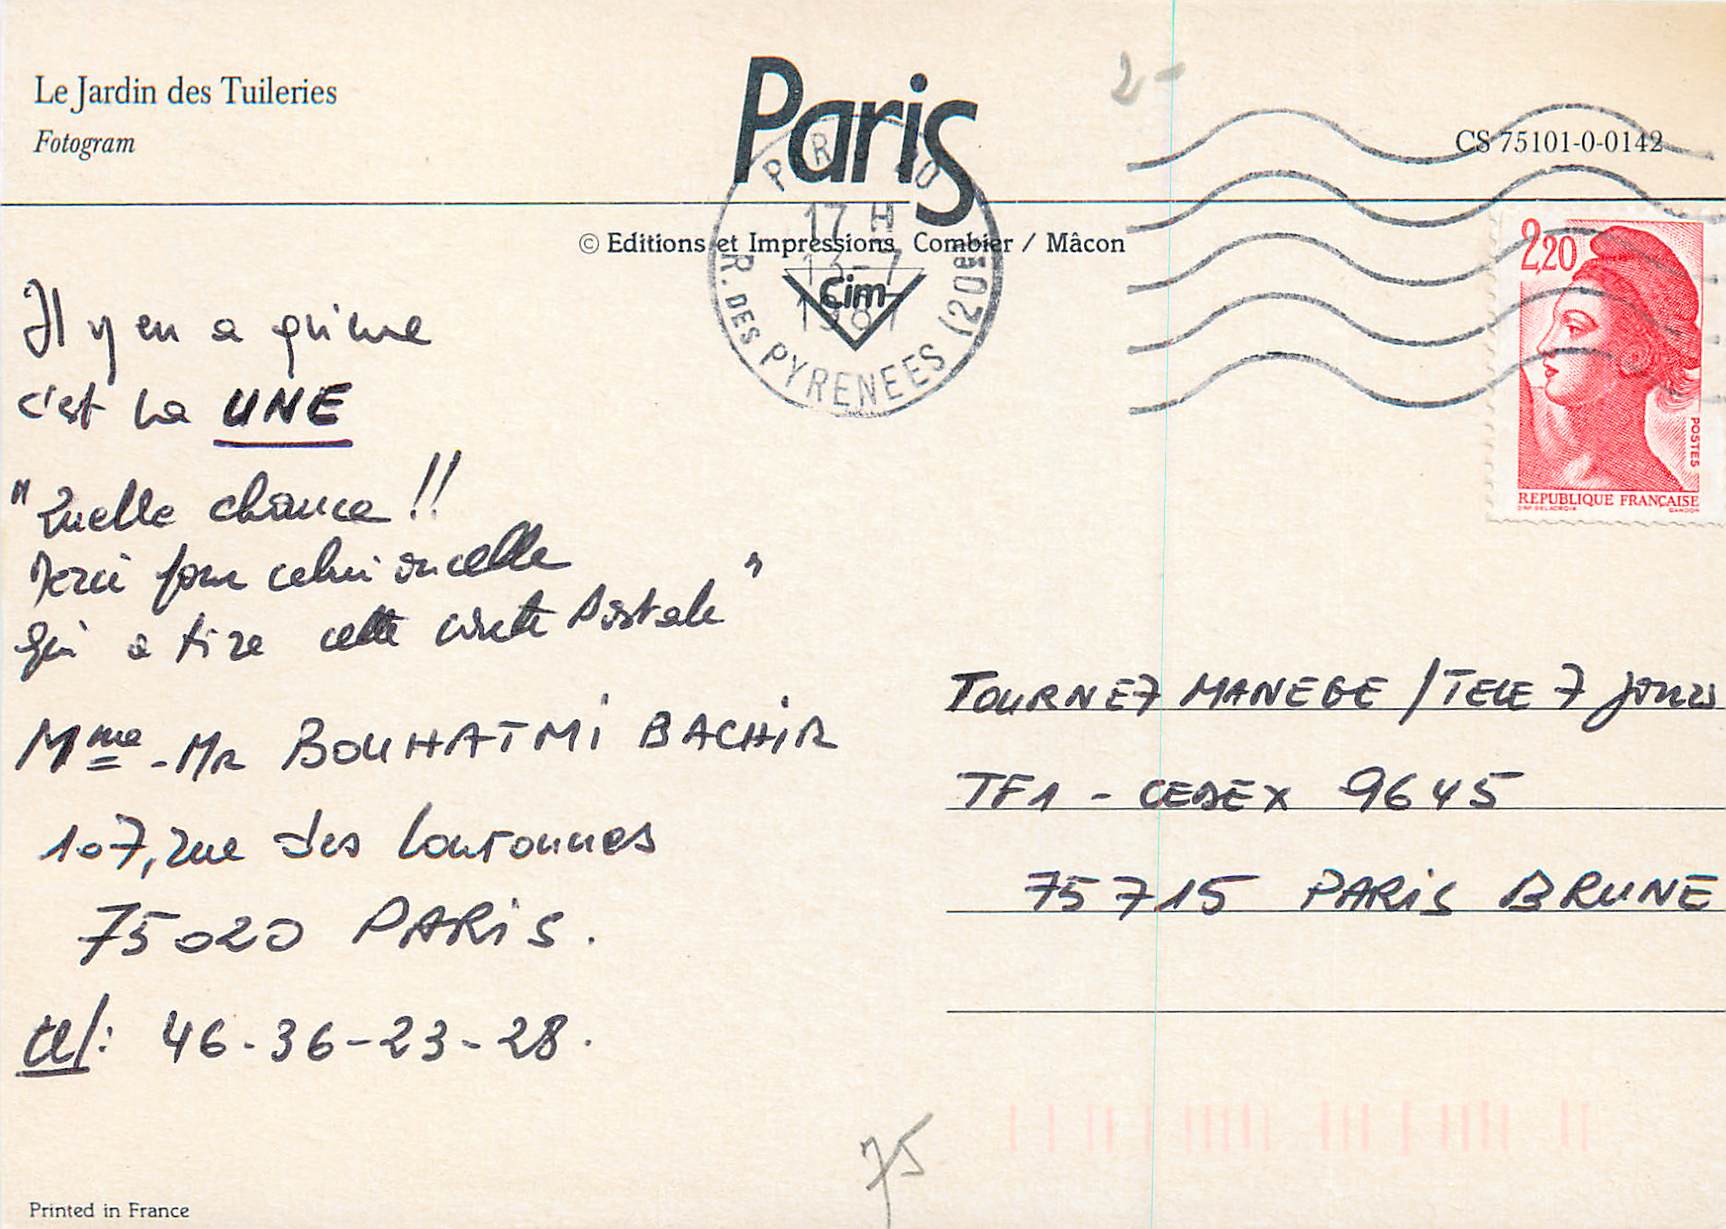 Le Jardin des Tuileries
Fotogram
Paris
CS 75101-0-0142
2-
© Editions et Impressions Combier / Mâcon
Cim
PARIS
17 H
13-7
1987
R. DES PYRENEES (20E)
2,20
POSTES
REPUBLIQUE FRANÇAISE
Il y en a qu'une
c'est la UNE
"Quelle chance!!
Merci pour celui ou celle
qui a tire cette carte Postale"
Mme - Mr BOUHATMi BACHiR
107, rue des
75020 PARiS.
tel: 46-36-23-28.
TOURNEZ MANEGE / TELE 7 jours
TF1 - CEDEX 9645
75715 PARiS BRUNE
75
Printed in France